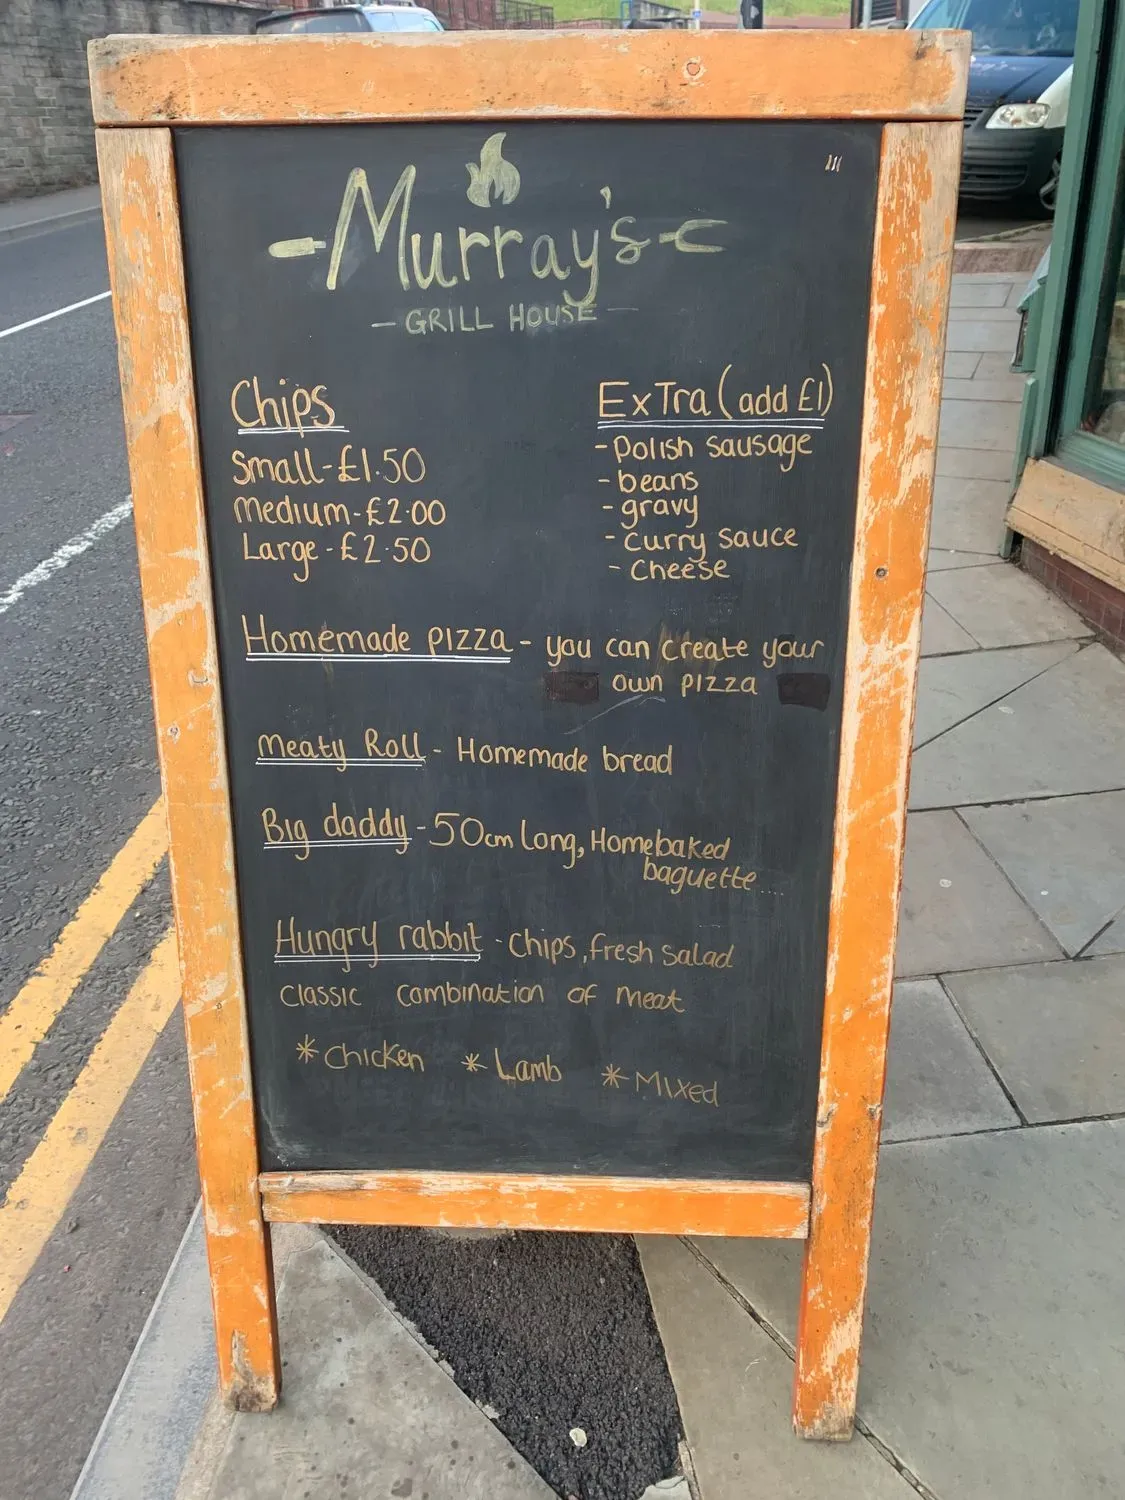 Murray's
- GRILL HOUSE -
Chips
Small - £1.50
Medium - £2.00
Large - £2.50
ExTra (add £1)
- Polish sausage
- beans
- gravy
- Curry sauce
- Cheese
Homemade pizza - you can create your
own pizza
Meaty Roll - Homemade bread
Big daddy - 50cm Long, Homebaked
baguette....
Hungry rabbit - Chips, fresh salad
Classic combination of meat
* Chicken * Lamb * Mixed